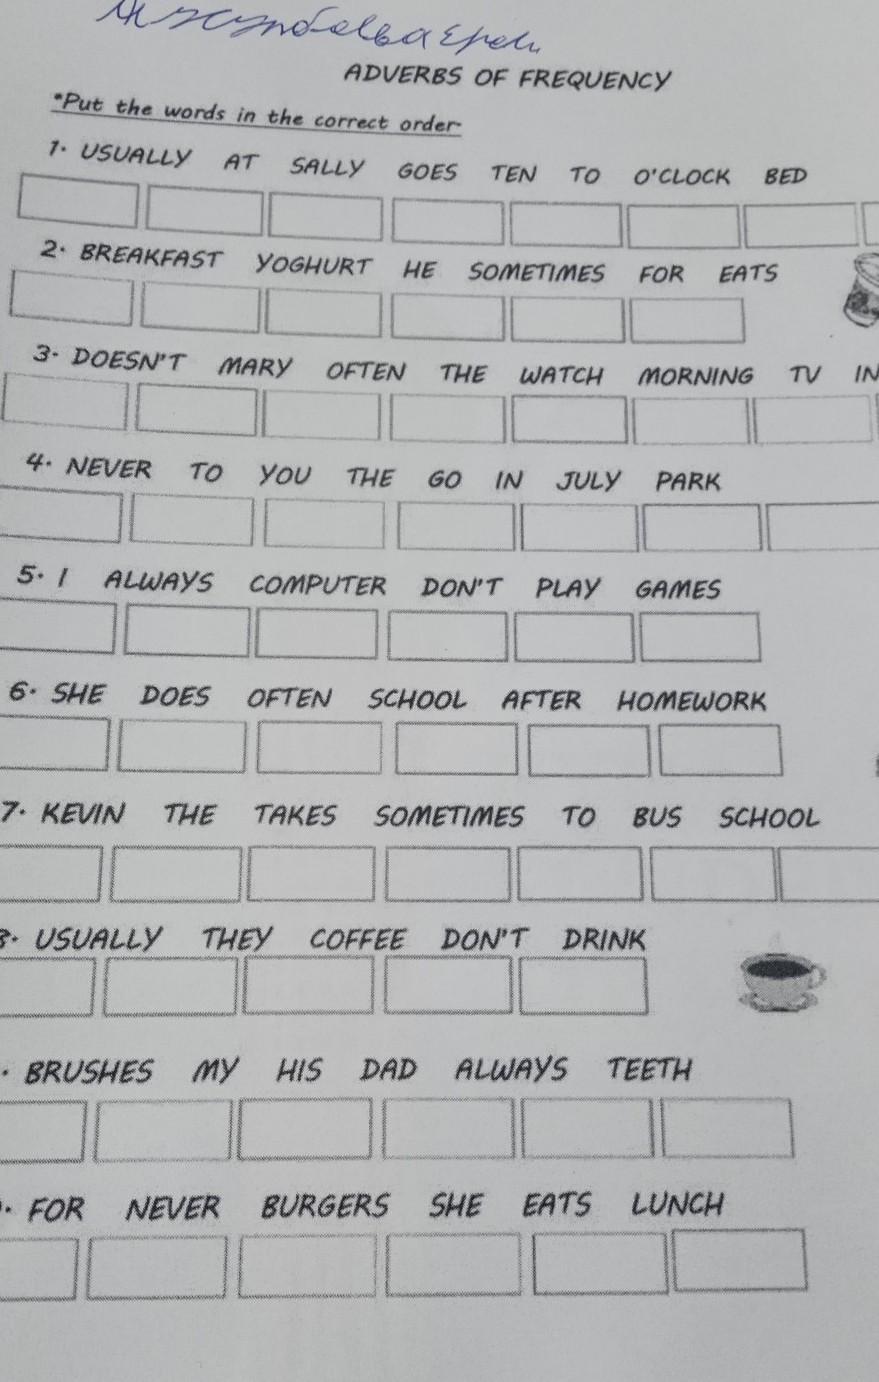 ADVERBS OF FREQUENCY
*Put the words in the correct order
1. USUALLY AT SALLY GOES TEN TO O'CLOCK BED
2. BREAKFAST YOGHURT HE SOMETIMES FOR EATS
3. DOESN'T MARY OFTEN THE WATCH MORNING TV IN
4. NEVER TO YOU THE GO IN JULY PARK
5. I ALWAYS COMPUTER DON'T PLAY GAMES
6. SHE DOES OFTEN SCHOOL AFTER HOMEWORK
7. KEVIN THE TAKES SOMETIMES TO BUS SCHOOL
8. USUALLY THEY COFFEE DON'T DRINK
. BRUSHES MY HIS DAD ALWAYS TEETH
. FOR NEVER BURGERS SHE EATS LUNCH